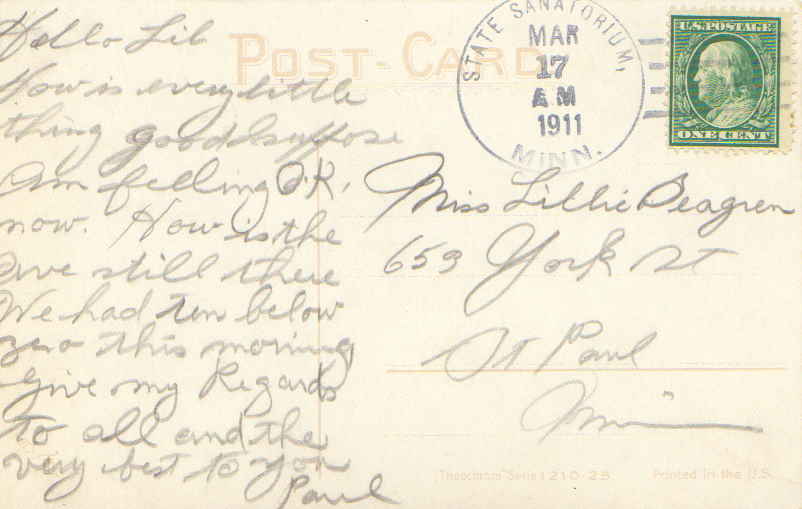 Hello Lil
How is every little
thing good I suppose
Am felling O.K.
now. How is the
ave still there
We had ten below
zero this morning
Give my Regards
to all and the
very best to you
Paul
POST-CARD
STATE SANATORIUM,
MAR
17
AM
1911
MINN.
U.S. POSTAGE
ONE CENT
Miss Lillie Peagren
659 York St
St Paul
Minn
"Theochrom" Serie 1210-25
Printed in the U.S.